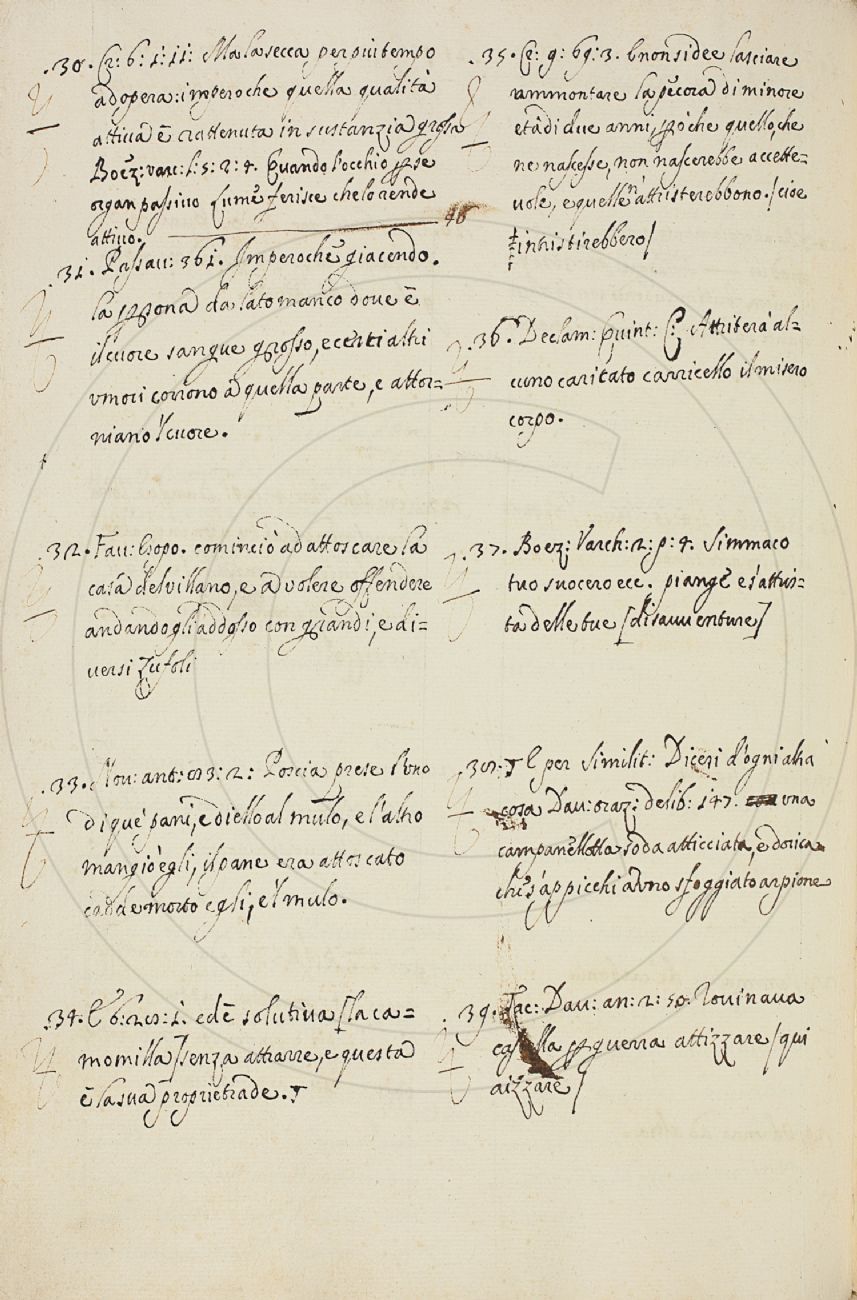 .30. Cr: 6: 1: 11: Ma la secca per piu tempo
adopera: imperoche quella qualità
attiua è rattenuta in sustanzia grossa
Boez: varc: l: 5: 2: 4. Quando l'occhio per se
organ passiuo lume ferisce che lo rende
attiuo. 40
.31. Passau: 361. Imperoche giacendo.
la persona da lato manco doue è
il cuore sangue grosso, e certi altri
vmori corrono a quella parte, e attor=
niano 'l cuore.
.32. Fau: Esopo. cominciò ad attoscare la
casa del villano, e a volere offendere
andandogli addosso con grandi, e di=
uersi zufoli
.33. Nou: ant: 83: 2: Poscia prese l'uno
di que' pani, e diello al mulo, e l'altro
mangiò egli, il pane era attoscato
cadde morto egli, e 'l mulo.
.34. E 6: 28: 1. ed è solutiua [la ca=
momilla] senza attrarre, e questa
è la sua proprietade.
.35. Cr: 9: 69: 3. E non si dee lasciare
ammontare la pecora di minore
età di due anni, però che quello, che
ne nascesse, non nascerebbe accette=
uole, e quelle n'attristerebbono. [cioe
intristirebbero]
.36. Declam: Quint: C: Attriterà al=
cuno caritato carricello il misero
corpo.
.37. Boez: Varch: 2: p: 4. Simmaco
tuo suocero ecc. piange e s'attris=
ta delle tue [disauuenture]
.38. E per similit: Dicesi d'ogni altra
cosa Dau: oraz: delib: 147. vna
campanellotta soda atticciata, e dorica
che s'appicchi ad vno sfoggiato arpione
.39. Tac: Dau: an: 2: 50. Rouinaua
per guerra attizzare [qui
aizzare]